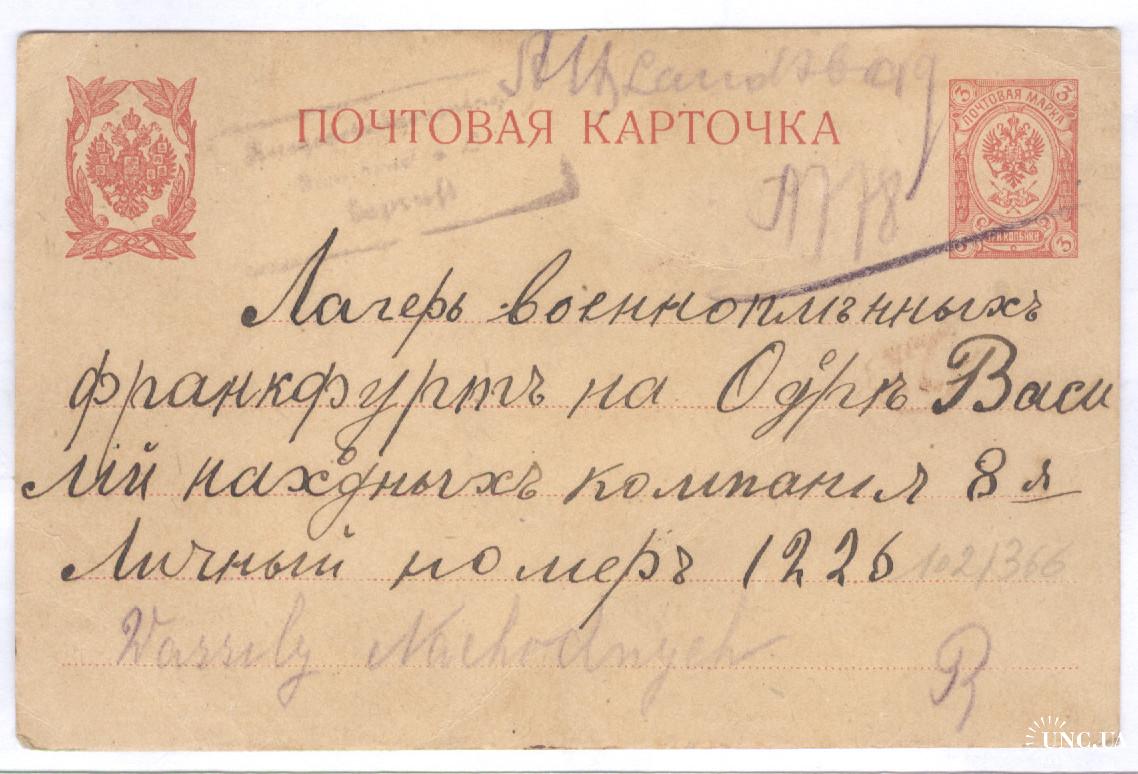 Alt Landsberg
ПОЧТОВАЯ КАРТОЧКА
3 ПОЧТОВАЯ МАРКА 3
3 ТРИ КОПѢЙКИ 3
A 778
Лагерь военноплѣнныхъ
франкфуртъ на Одѣрѣ Васи
лій нахѳдныхъ компанія 8 я
Личный номеръ 1226 102/366
Wassily Nachodnych
R
UNC.UA